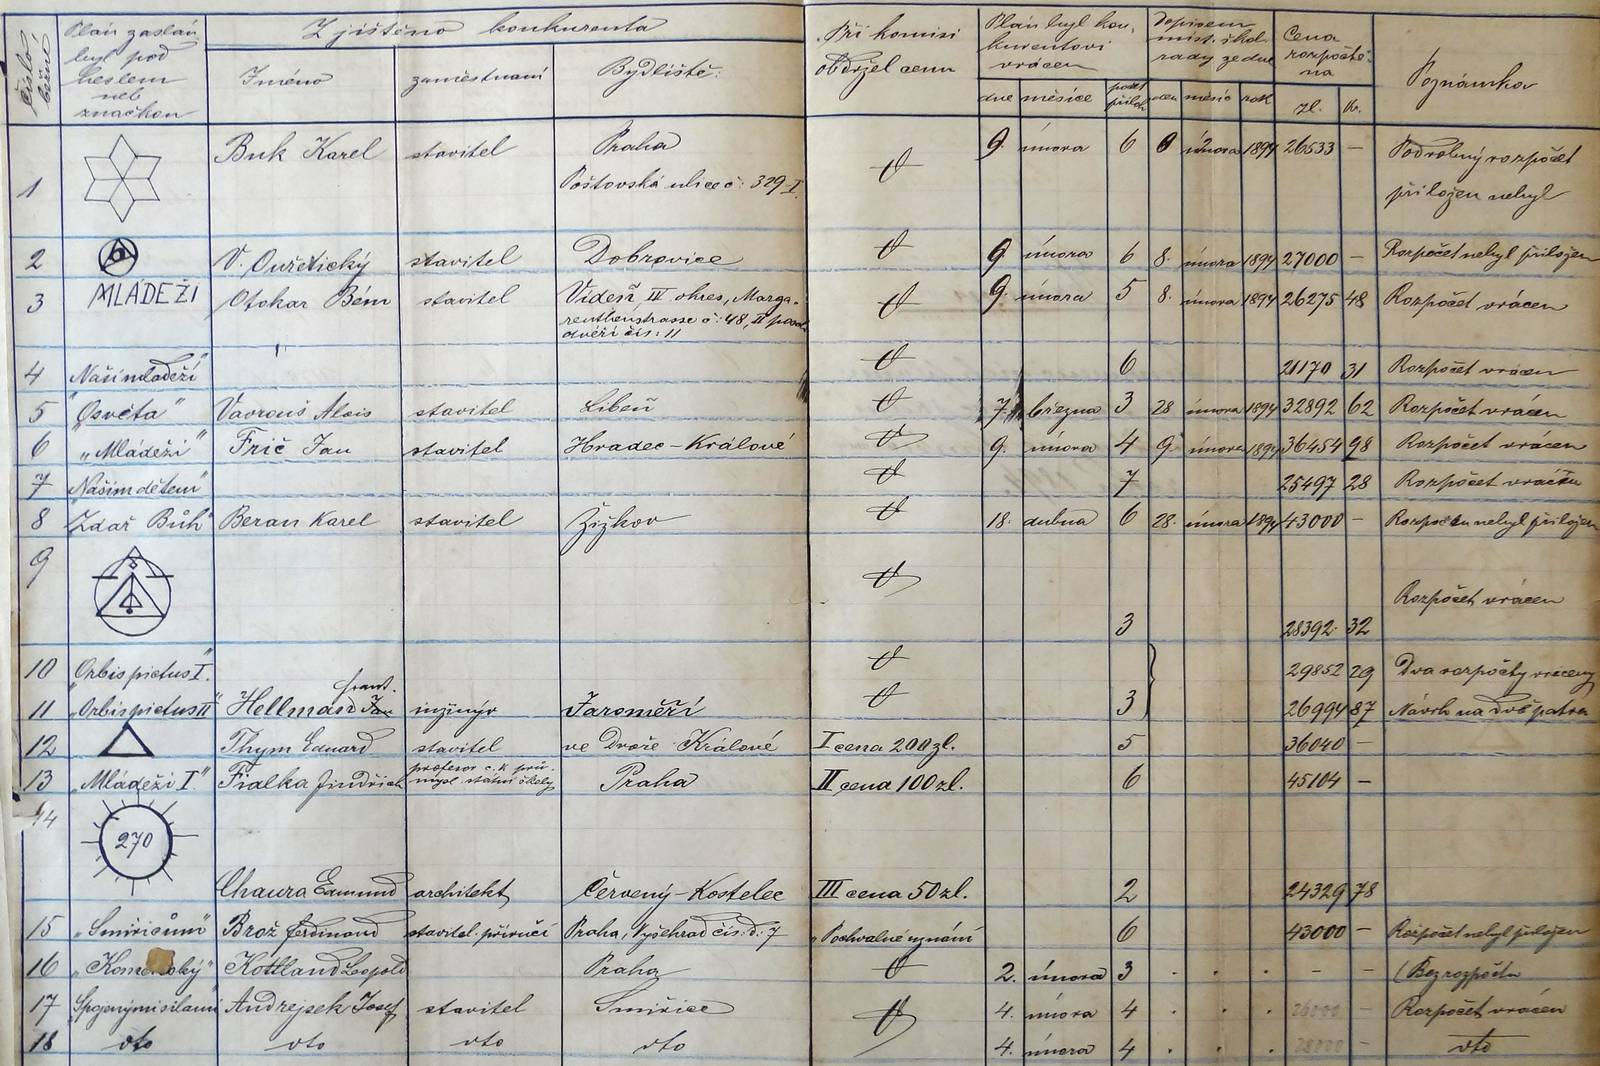 Číslo běžné
Plán zaslán byl pod heslem neb značkou
Zjištěno konkurenta
Jméno zaměstnání Bydliště:
Při komisi obdržel cenu
Plán byl konkurentovi vrácen
dne měsíce počet příloh
Dopisem míst. škol. rady ze dne
den měsíc rok
Cena rozpočtena
zl. kr.
Poznámka
1 Buk Karel stavitel Praha 9. února 6 února 1894 26533 – Podrobný rozpočet
Poštovská ulice č: 329-I. přiložen nebyl
2 V. Ouřetický stavitel Dobrovice 9 února 6 8. února 1894 27000 – Rozpočet nebyl přiložen
3 MLÁDEŽI Otokar Bém stavitel Vídeň IV okres, Marga- 9. února 5 8. února 1894 26275 48 Rozpočet vrácen
renthenstrasse č: 48, II
dvéří čís: 11
4 Naší mládeži" 6 21170 31 Rozpočet vrácen
5 "Osvěta" Vavrouš Alois stavitel Libeň 7 března 3 28 února 1894 32892 62 Rozpočet vrácen
6 „Mládeži" Frič Jan stavitel Hradec-Králové 9. února 4 9. února 1894 36454 98 Rozpočet vrácen
7 Našim dětem" 7 25497 28 Rozpočet vrácen
8 "Zdař Bůh" Beran Karel stavitel Žižkov 18. dubna 6 28. února 1894 43000 – Rozpočet nebyl přiložen
9 3 28392 32 Rozpočet vrácen
10 „Orbis pictus I." 29852 29 Dva rozpočty vráceny
frant.
11 „Orbis pictus II" Hellmann Jan inžinýr Jaroměři 3 26994 87 Návrh na dvě patra
12 Thym Eduard stavitel ve Dvoře Králové I cena 200 zl. 5 36040 –
13 „Mládeži I." Fialka Jindřich profesor c. k. prů-
mysl. státní školy Praha II cena 100 zl. 6 45104 –
14 270
Chaura Edmund architekt Červený-Kostelec III cena 50 zl. 2 24329 78
15 „Smiřicům" Brož Ferdinand stavitel. příručí Praha, Vyšehrad čís. d. 7 Pochvalné uznání 6 43000 – Rozpočet nebyl přiložen
16 „Komenský" Kottland Leopold Praha 2. února 3 . . . – – Bez rozpočtu
17 "Spojenými silami Andrejsek Josef stavitel Smiřice 4. února 4 . . . 26000 – Rozpočet vrácen
18 dto dto dto dto 4. února 4 . . . 28000 – dto